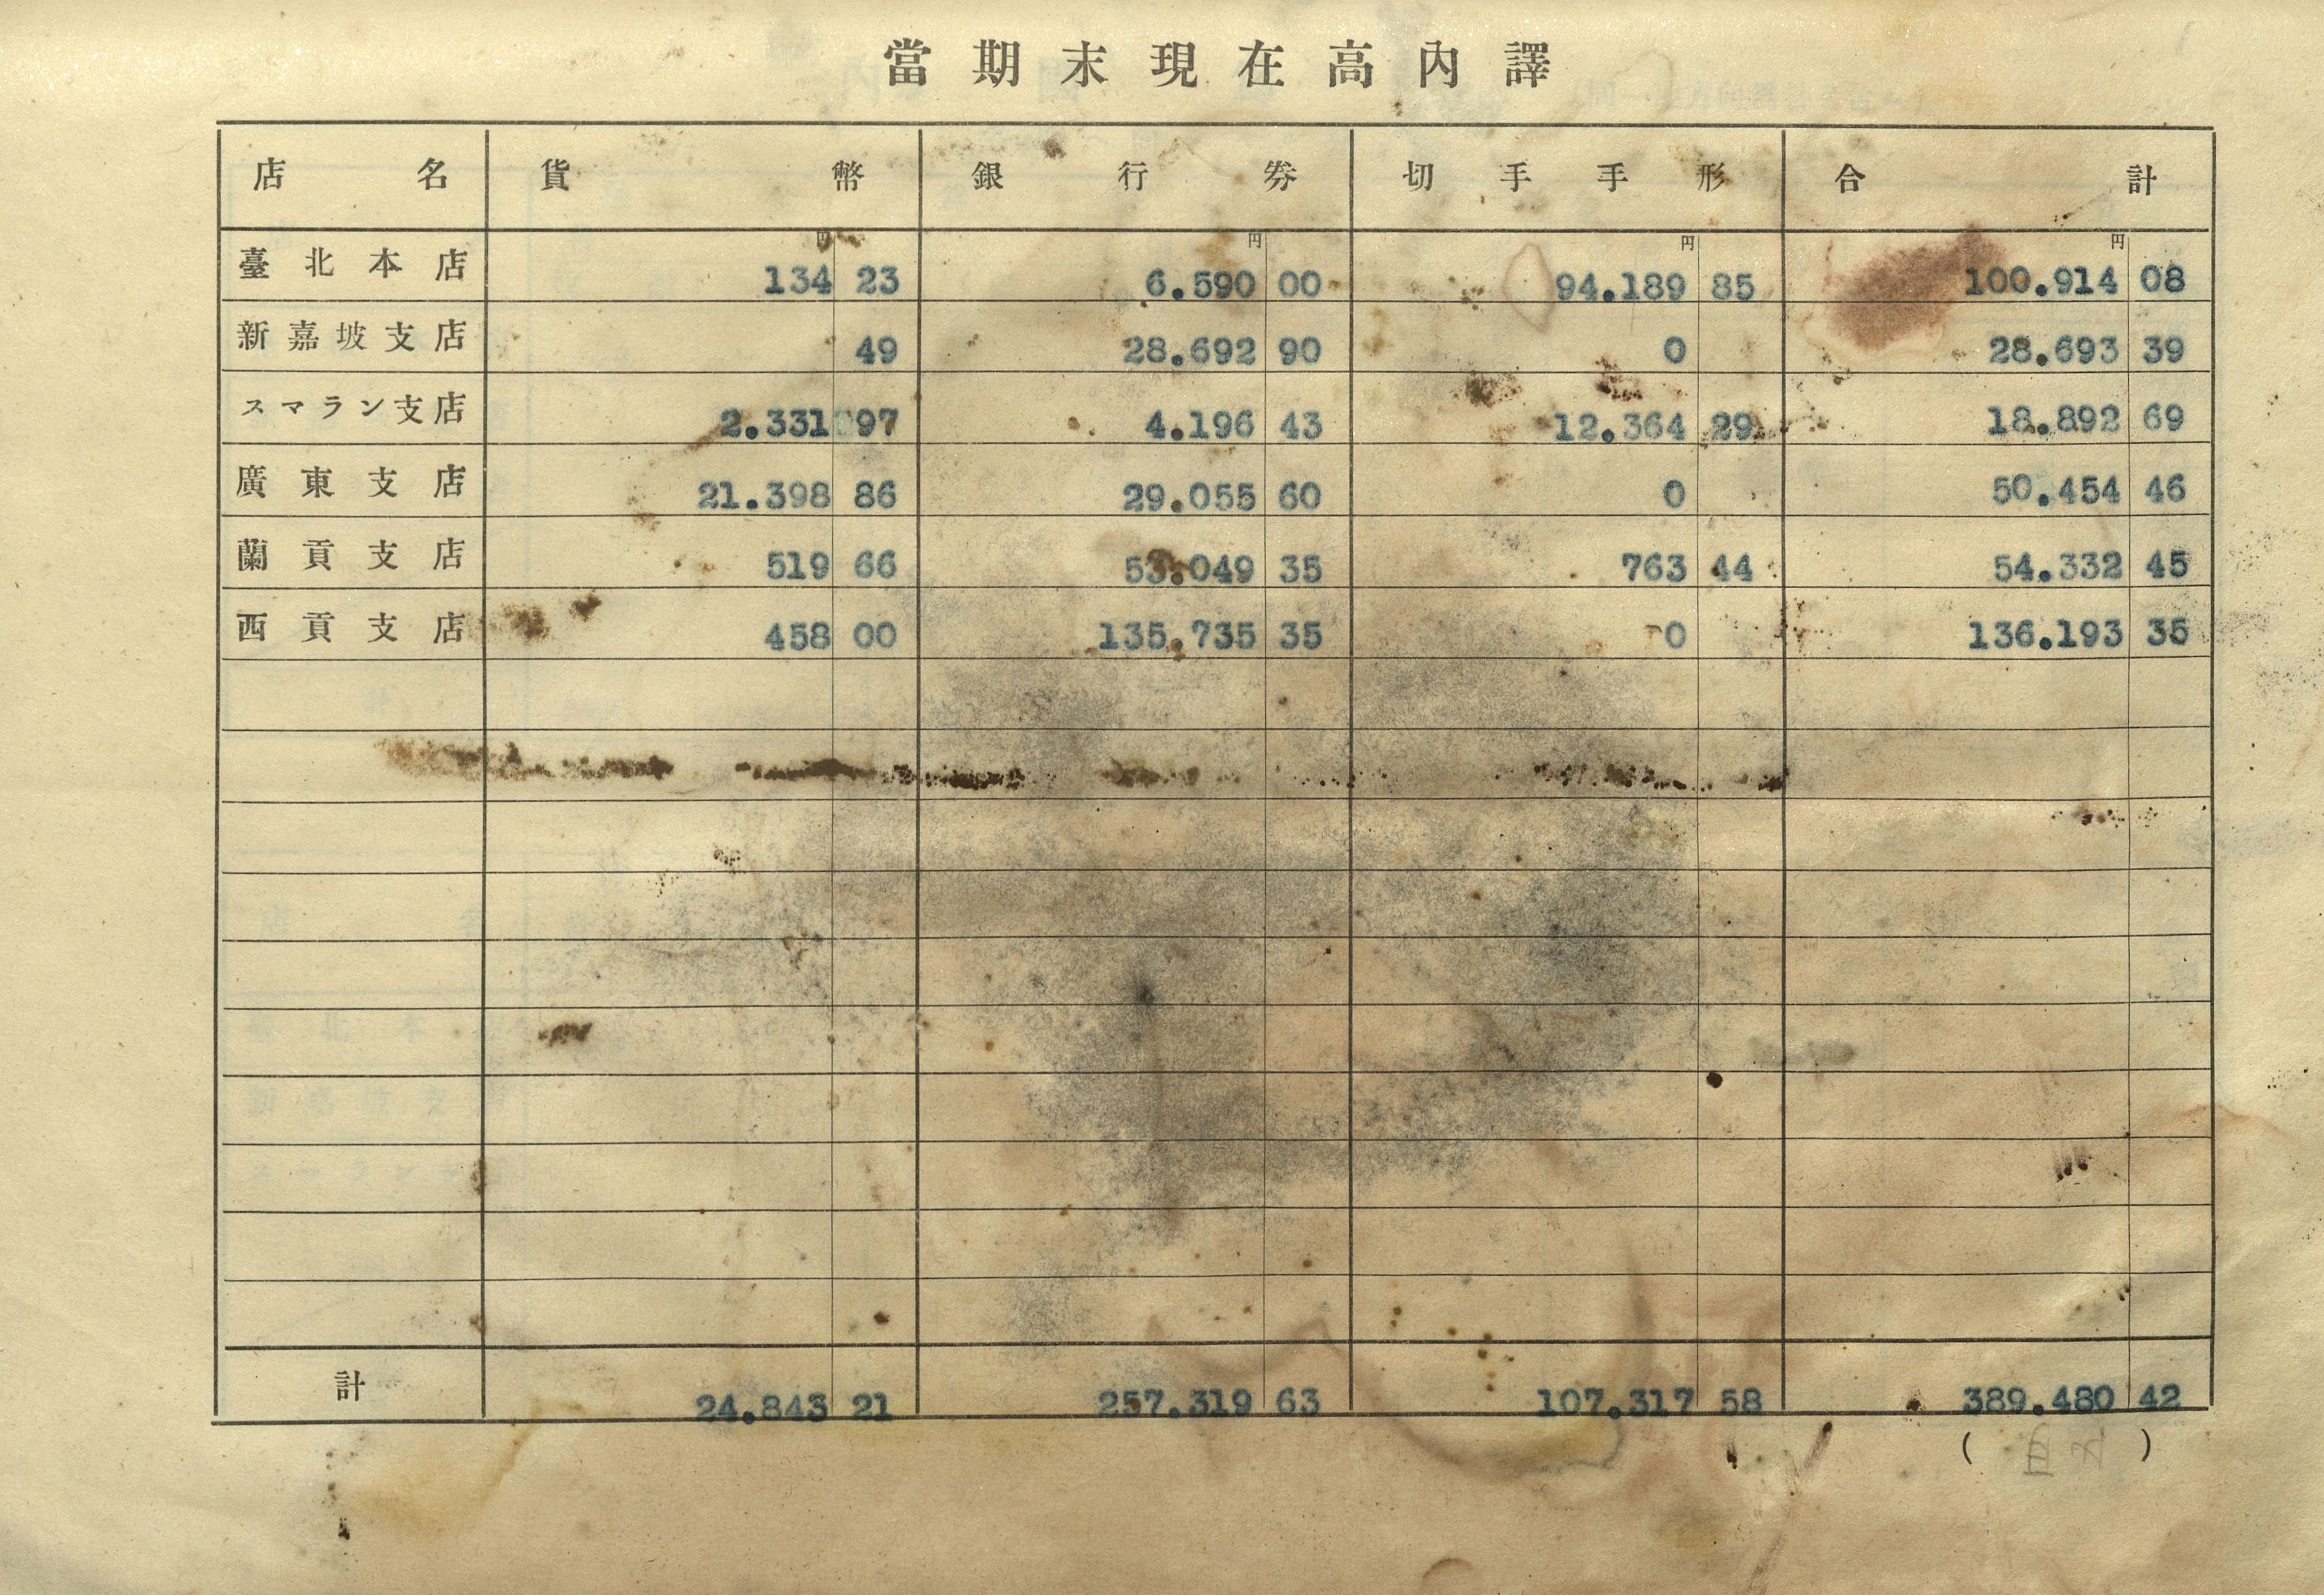 當期末現在高內譯
店名 貨幣 銀行券 切手手形 合計
円 円 円 円
臺北本店 134 23 6.590 00 94.189 85 100.914 08
新嘉坡支店 49 28.692 90 0 28.693 39
スマラン支店 2.331 97 4.196 43 12.364 29 18.892 69
廣東支店 21.398 86 29.055 60 0 50.454 46
蘭貢支店 519 66 53.049 35 763 44 54.332 45
西貢支店 458 00 135.735 35 0 136.193 35
計 24.843 21 257.319 63 107.317 58 389.480 42
( )